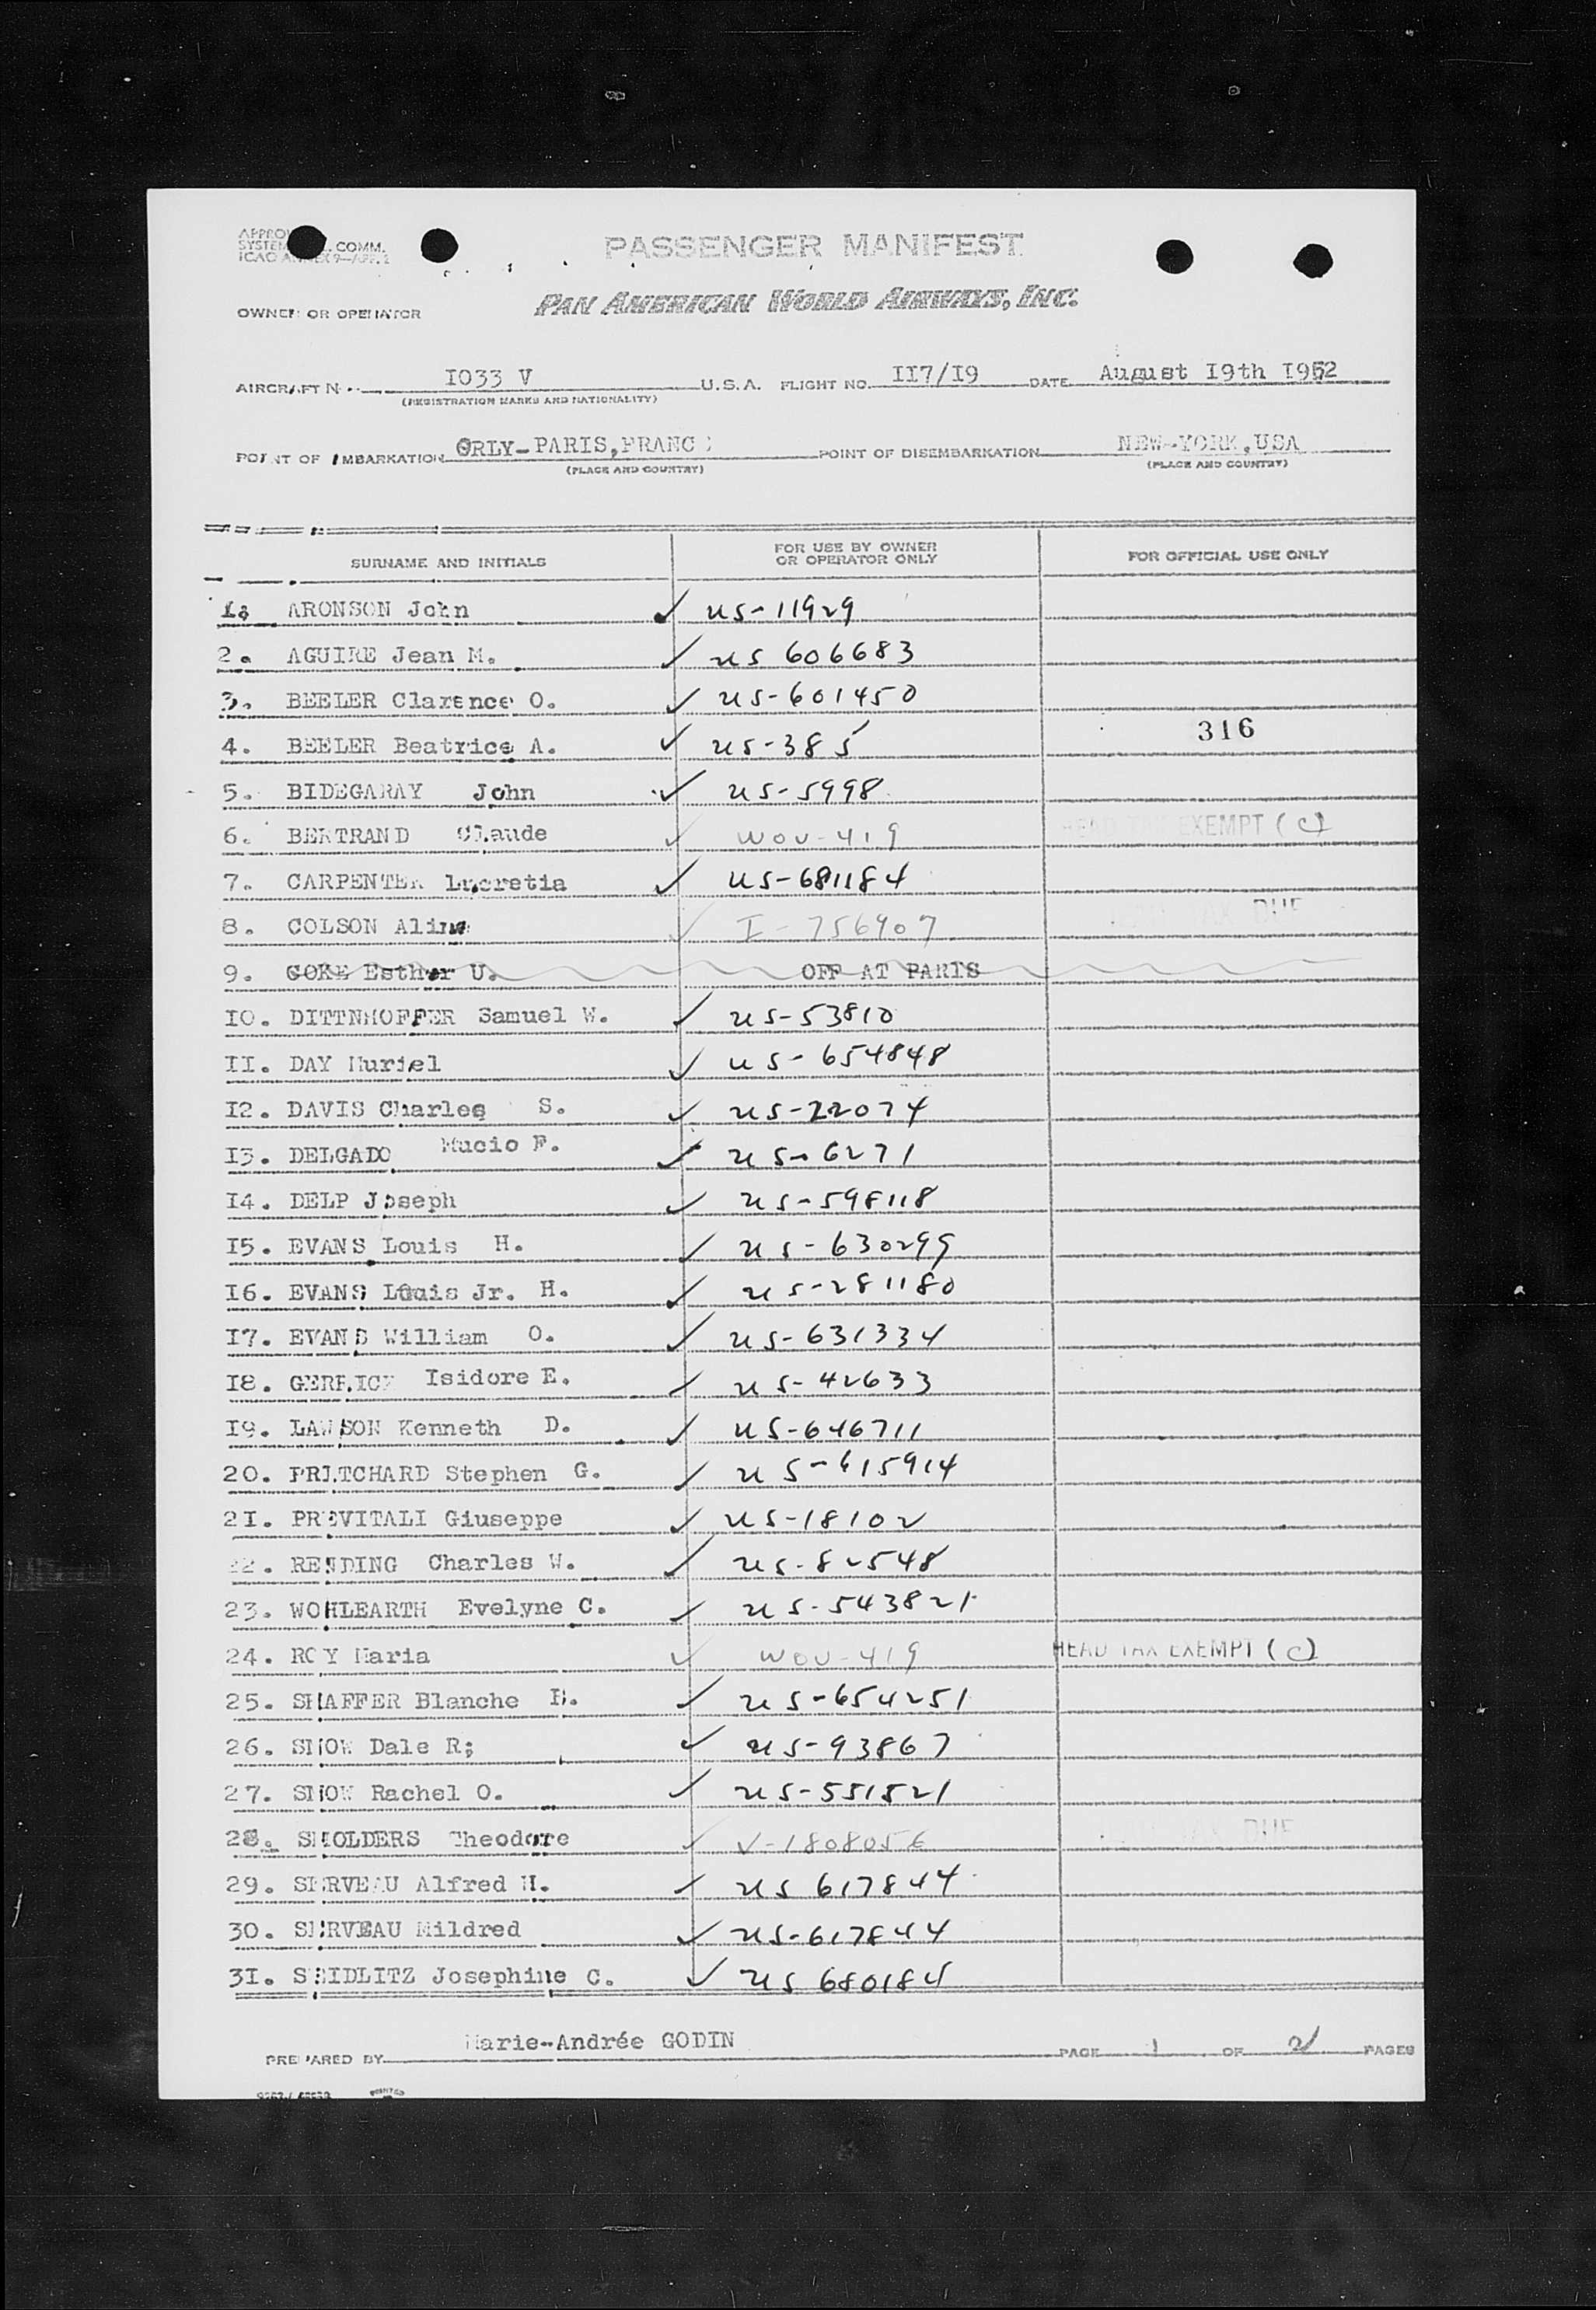 PASSENGER MANIFEST
COMM.
OWNER OR OPERATOR PAN AMERICAN WORLD AIRWAYS, INC.
AIRCRAFT N I033 V U.S.A. FLIGHT NO. II7/I9 DATE August I9th I952
(REGISTRATION MARKS AND NATIONALITY)
POINT OF EMBARKATION ORLY-PARIS,FRANC POINT OF DISEMBARKATION NEW-YORK,USA
(PLACE AND COUNTRY) (PLACE AND COUNTRY)
SURNAME AND INITIALS FOR USE BY OWNER OR OPERATOR ONLY FOR OFFICIAL USE ONLY
1. ARONSON John ✓ US-11929
2. AGUIRE Jean M. ✓ US 606683
3. BEELER Clarence O. ✓ US-601450
316
4. BEELER Beatrice A. ✓ US-385
5. BIDEGARAY John ✓ US-5998
6. BERTRAND Claude ✓ WOU-419 HEAD TAX EXEMPT (C)
7. CARPENTER Lucretia ✓ US-681184
8. COLSON Aline ✓ I-756907 TAX DUE
9. GOKE Esther U. OFF AT PARIS
I0. DITTNHOFFER Samuel W. ✓ US-53810
II. DAY Muriel ✓ US-654848
I2. DAVIS Charles S. ✓ US-22074
I3. DELGADO Mucio F. ✓ US-6271
I4. DELP Joseph ✓ US-598118
I5. EVANS Louis H. ✓ US-630299
I6. EVANS Louis Jr. H. ✓ US-281180
I7. EVANS William O. ✓ US-631334
I8. Isidore E. ✓ US-42633
I9. LAWSON Kenneth D. ✓ US-646711
20. PRITCHARD Stephen G. ✓ US-615914
2I. PREVITALI Giuseppe ✓ US-18102
22. REDDING Charles W. ✓ US-82548
23. WOHLEARTH Evelyne C. ✓ US-543821
24. ROY Maria ✓ WOU-419 HEAD TAX EXEMPT (C)
25. SHAFFER Blanche ✓ US-654251
26. SNOW Dale R; ✓ US-93867
27. SNOW Rachel O. ✓ US-551521
28. SMOLDERS Theodore ✓ V-1808056 TAX DUE
29. SERVEAU Alfred H. ✓ US 617844
30. SERVEAU Mildred ✓ US-617844
3I. SEIDLITZ Josephine C. ✓ US 680184
PREPARED BY Marie-Andrée GODIN PAGE 1 OF 2 PAGES